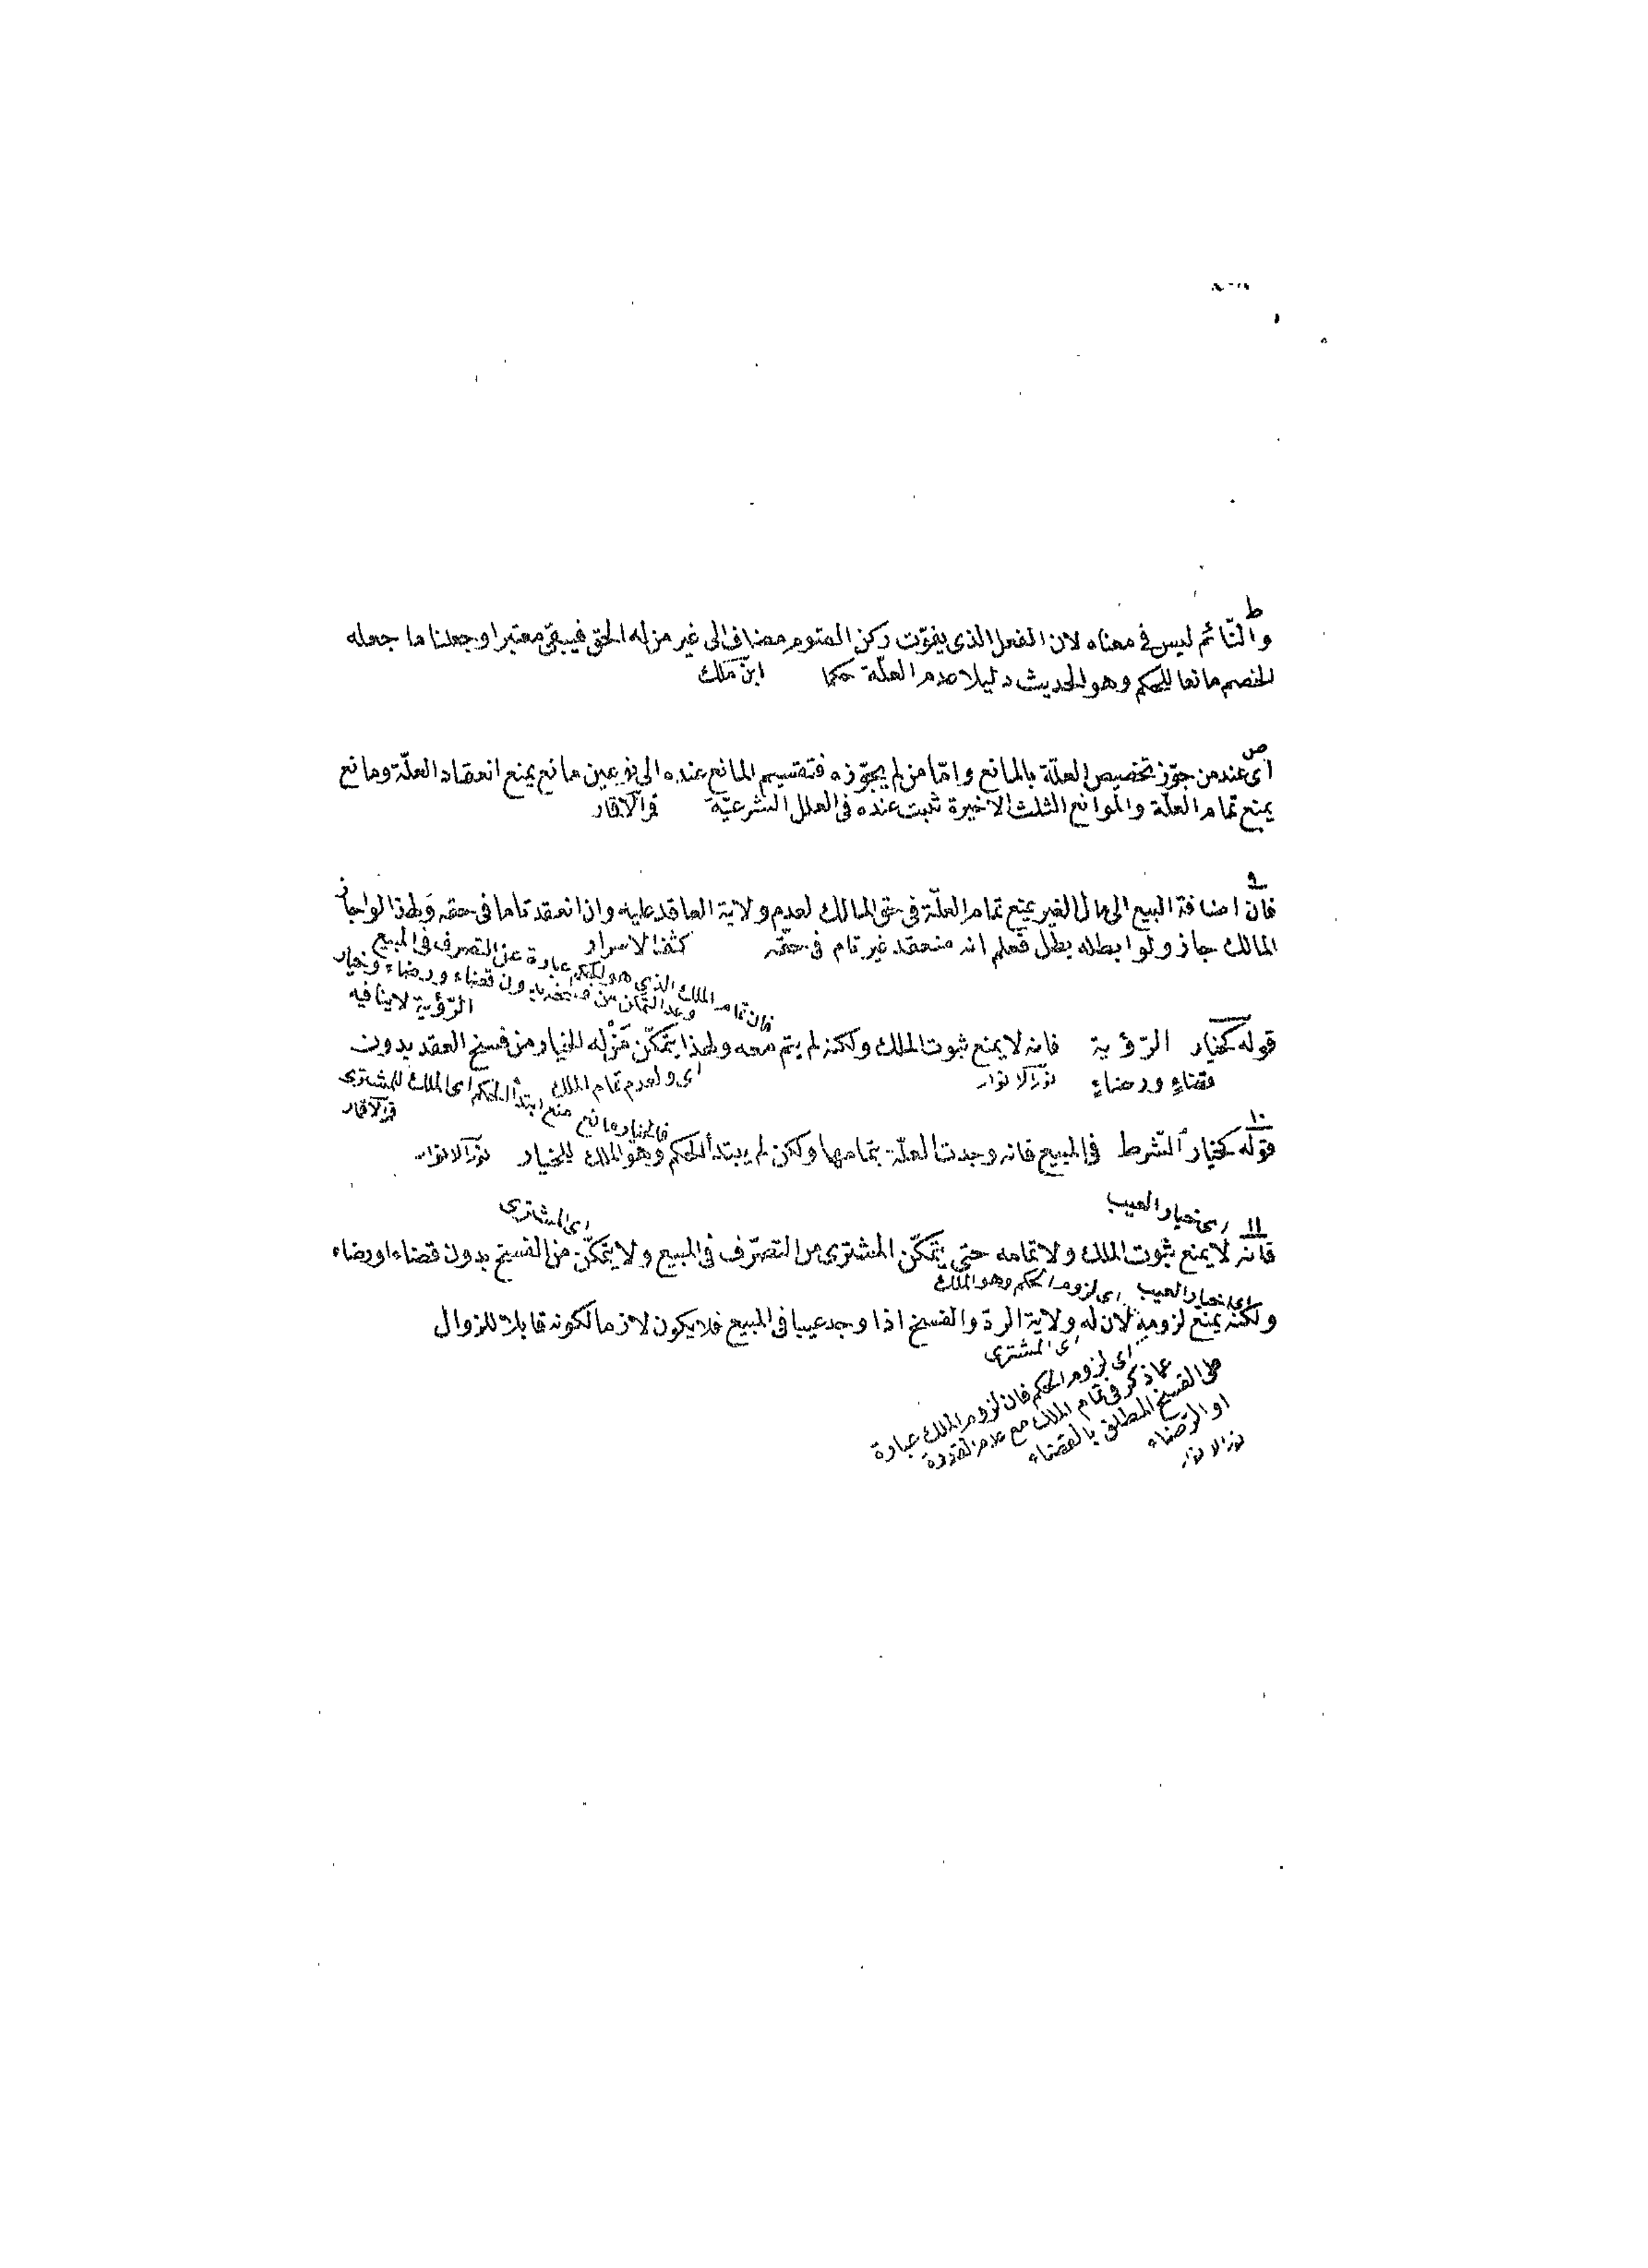 ط
والنّائم ليس فى معناه لان الفعل الذى يفوّت ركن الصوم مضاف الى غير من له الحق فيبقى معتبرا وجعلنا ما جعله
الخصم مانعا للحكم وهو الحديث دليلا عدم العلّة حكما ابن ملك
ص
اى عند من جوّز تخصيص العلّة بالمانع وامّا من لم يجوّزه فتقسيم المانع عنده الى نوعين مانع يمنع انعقاد العلّة ومانع
يمنع تمام العلّة والموانع الثلث الاخيرة تثبت عنده فى العلل الشرعيّة قمر الاقمار
٩
فان اضافة البيع الى مال الغير يمنع تمام العلّة فى حق المالك لعدم ولاية العاقد عليه وان انعقد تاما فى حقه ولهذا لو اجاز
المالك جاز ولو ابطله بطل فعلم انه منعقد غير تام فى حقّه كشف الاسرار
فان تمام الملك الذى هو الحكم عبارة عن التصرف فى المبيع
وعدم التمكن من فسخه بدون قضاء ورضاء وخيار
الرّؤية لا ينافيه
قوله كخيار الرّؤية فانه لا يمنع ثبوت الملك ولكنه لم يتم معه ولهذا يتمكّن مَنْ له الخيار من فسخ العقد بدون
قضاءٍ ورضاءٍ نور الانوار
اى ولعدم تمام الملك
فالخيار مانع منع ابتدأ الحكم اى الملك للمشترى
قمر الاقمار
١٠
قوله كخيار الشّرط فى المبيع فانه وجدت العلّة بتمامها ولكن لم يبتدأ الحكم وهو الملك للخيار نور الانوار
١١ اى خيار العيب
اى المشترى
فانه لا يمنع ثبوت الملك ولا تمامه حتى يتمكّن المشترى من التصرّف فى المبيع ولا يتمكّن من الفسخ بدون قضاء او رضاء
اى خيار العيب اى لزوم الحكم وهو الملك
ولكنه يمنع لزومه لان له ولاية الردّ والفسخ اذا وجد عيبا فى المبيع فلا يكون لازما لكونه قابلا للزوال
اى المشترى
اى لزوم الحكم فان لزوم الملك عبارة
عما ذكر فى تمام الملك مع عدم القدرة
على الفسخ المطلق بالقضاء
او الرّضاء
نور الانوار